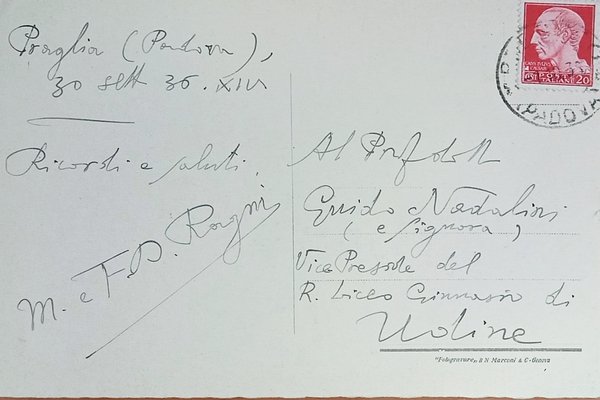 Praglia (Padova),
30 sett 36. XIV
Ricordi e saluti.
M. e F. D. Ragni
Al Prof dott
Guido Nadalini
(e Signora)
Vice Preside del
R. Liceo Ginnasio di
Udine
"Fotogravure„ B N Marconi & C - Genova
POSTE
ITALIANE 20
(PADOVA)